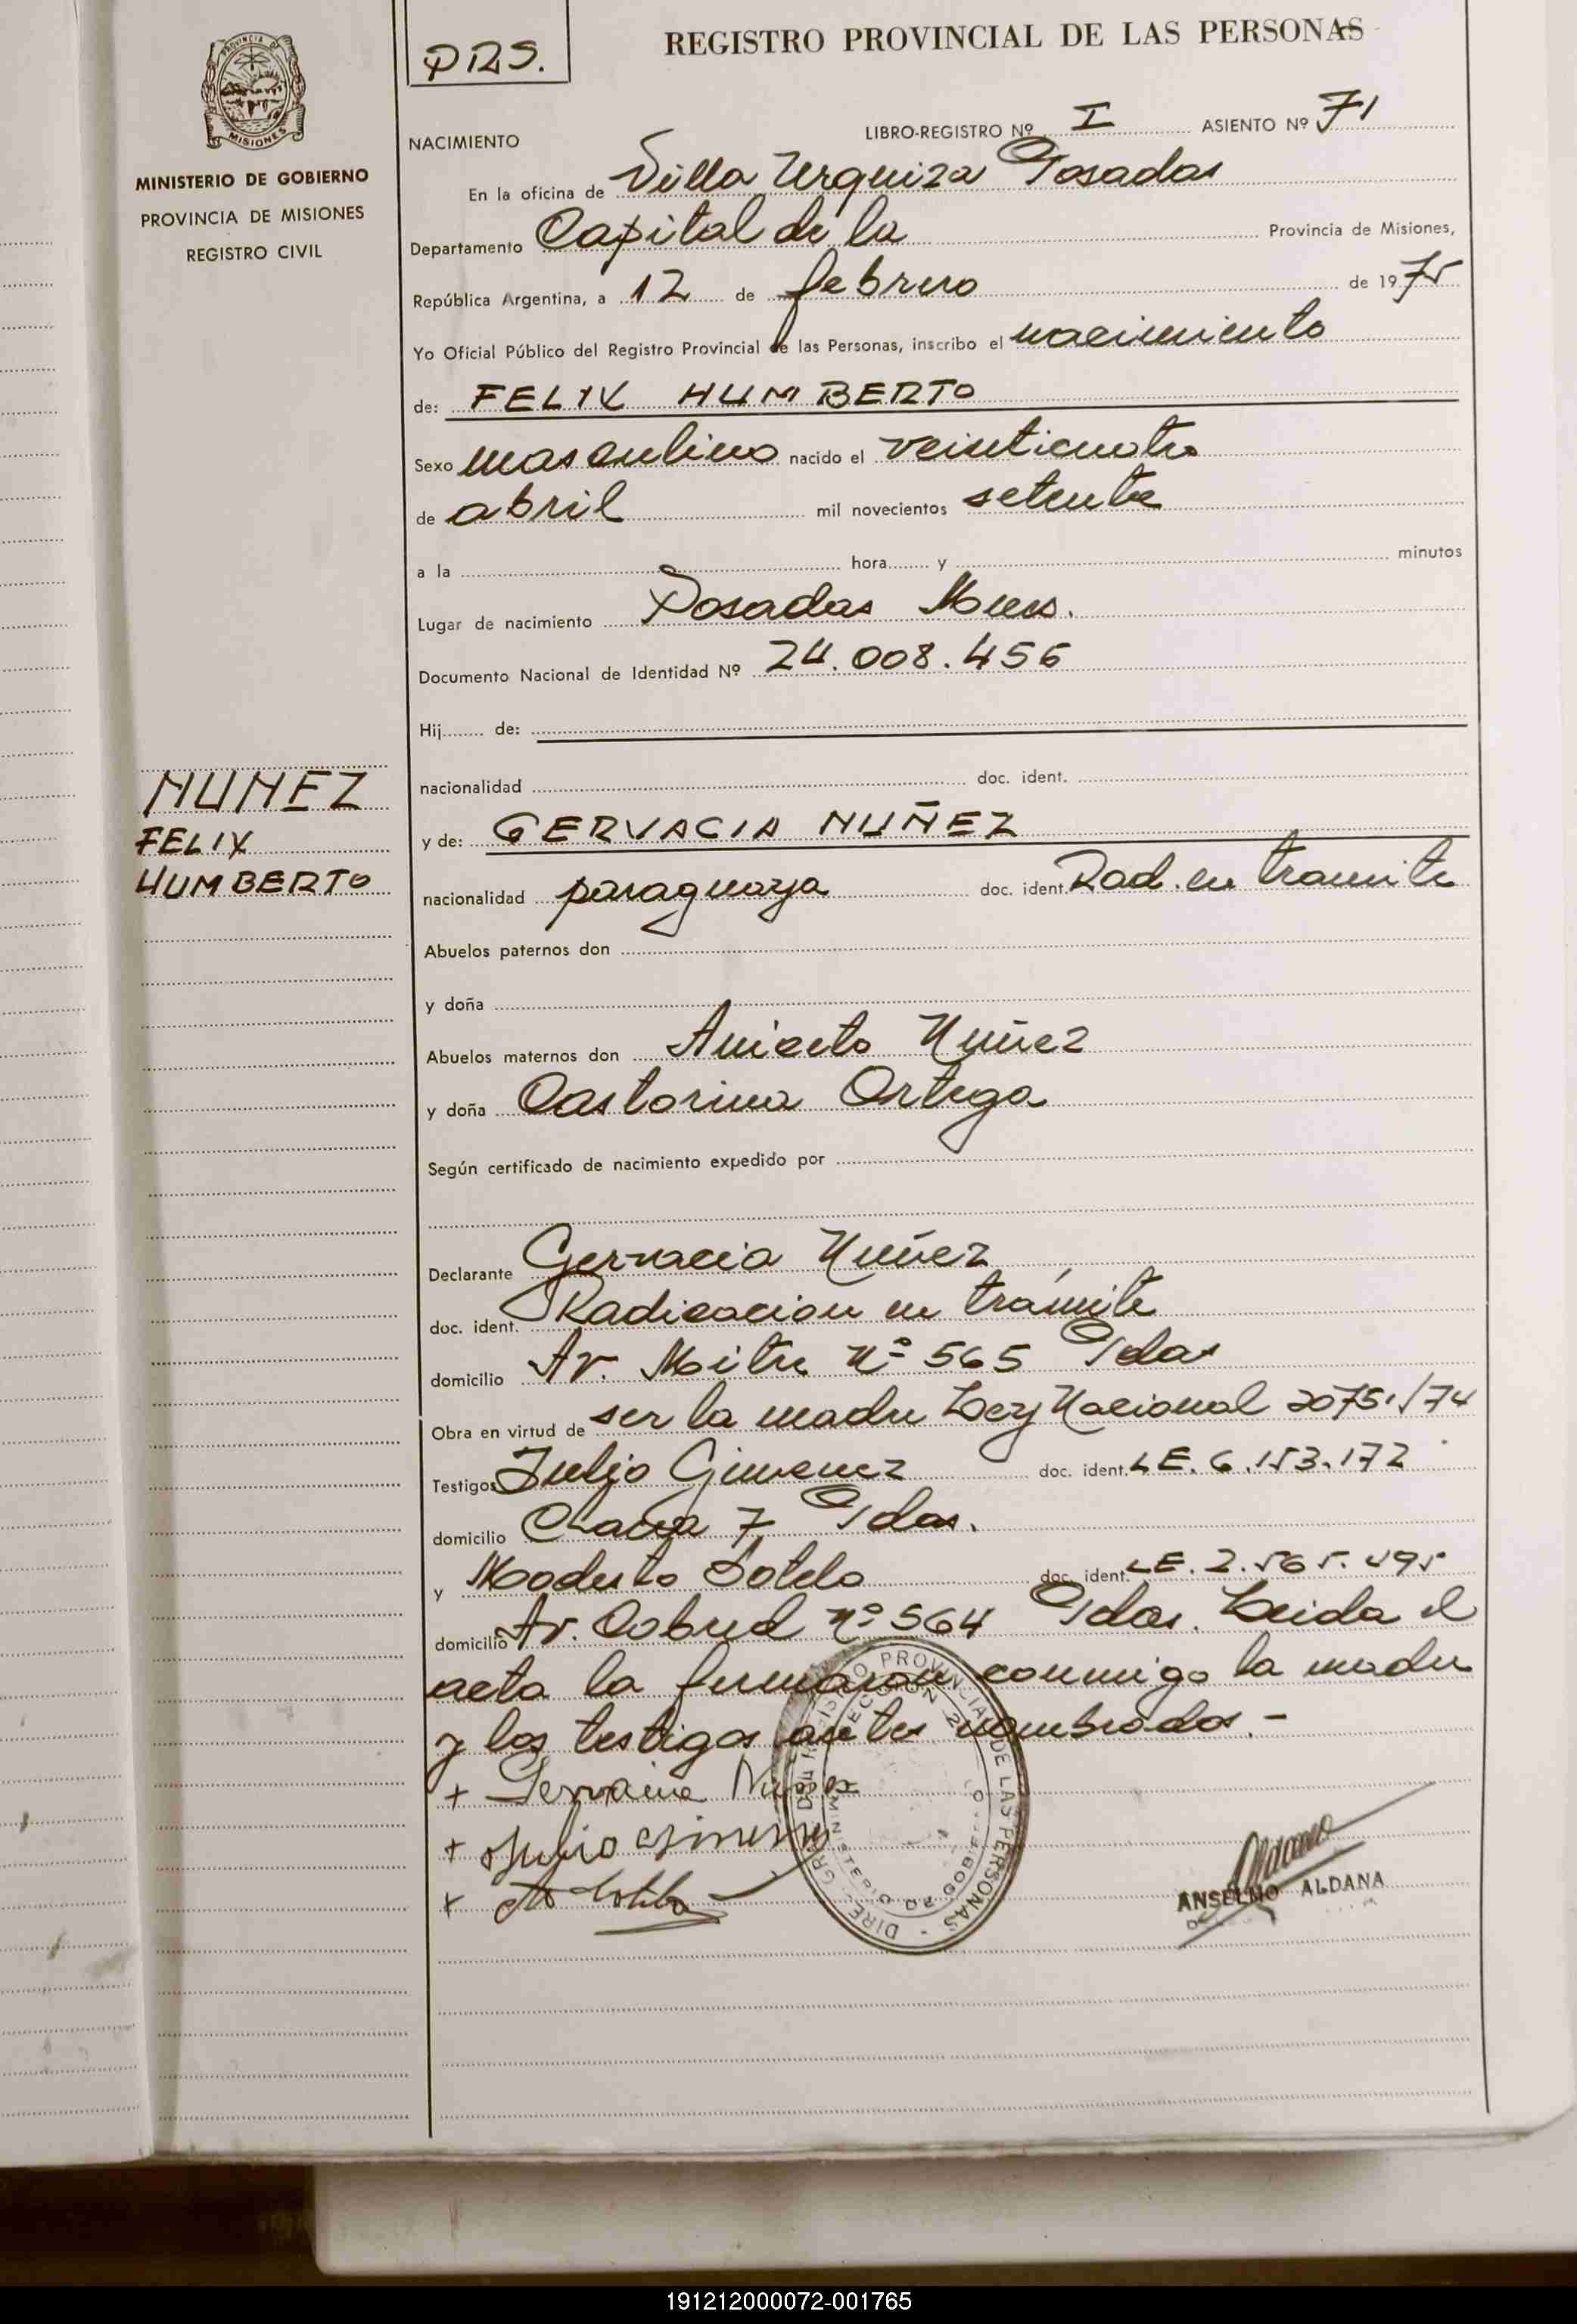 PROVINCIA DE
MISIONES
MINISTERIO DE GOBIERNO
PROVINCIA DE MISIONES
REGISTRO CIVIL
NUÑEZ
FELIX
HUMBERTO
PRS.
REGISTRO PROVINCIAL DE LAS PERSONAS
NACIMIENTO LIBRO-REGISTRO Nº I ASIENTO Nº 71
En la oficina de Villa Urquiza Posadas
Departamento Capital de la Provincia de Misiones,
República Argentina, a 12 de febrero de 1975
Yo Oficial Público del Registro Provincial de las Personas, inscribo el nacimiento
de: FELIX HUMBERTO
Sexo masculino nacido el veinticuatro
de abril mil novecientos setenta
a la hora y minutos
Lugar de nacimiento Posadas Mnes.
Documento Nacional de Identidad Nº 24.008.456
Hij de:
nacionalidad doc. ident.
y de: GERVACIA NUÑEZ
nacionalidad paraguaya doc. ident. Rad. en tramite
Abuelos paternos don
y doña
Abuelos maternos don Aniceto Nuñez
y doña Castorina Ortega
Según certificado de nacimiento expedido por
Declarante Gervacia Nuñez
doc. ident. Radicacion en trámite
domicilio Av. Mitre Nº 565 Pdas
Obra en virtud de ser la madre Ley Nacional 20751/74
Testigos Julio Gimenez doc. ident. L.E. 6.153.172
domicilio Chacra 7 Pdas.
y Modesto Sotelo doc. ident. L.E. 2.565.495
domicilio Av. Cabred nº 564 Pdas. Leida el
acta la firmaran conmigo la madre
y los testigos antes nombrados.-
+ Nuñez
+ Julio Gimenez
+ M Sotelo
Aldana
ANSELMO ALDANA
REGISTRO PROVINCIAL DE LAS PERSONAS
MINISTERIO DE GOBIERNO
191212000072-001765